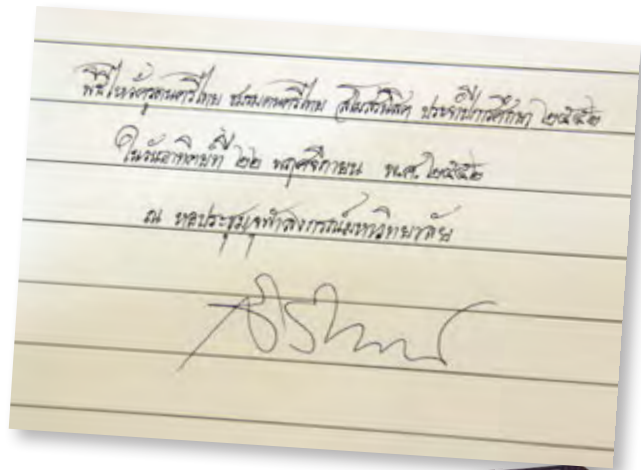 พิธีไหว้ครูดนตรีไทย ชมรมดนตรีไทย สโมสรนิสิต ประจำปีการศึกษา ๒๕๕๒
ในวันอาทิตย์ที่ ๒๒ พฤศจิกายน พ.ศ. ๒๕๕๒
ณ หอประชุมจุฬาลงกรณ์มหาวิทยาลัย